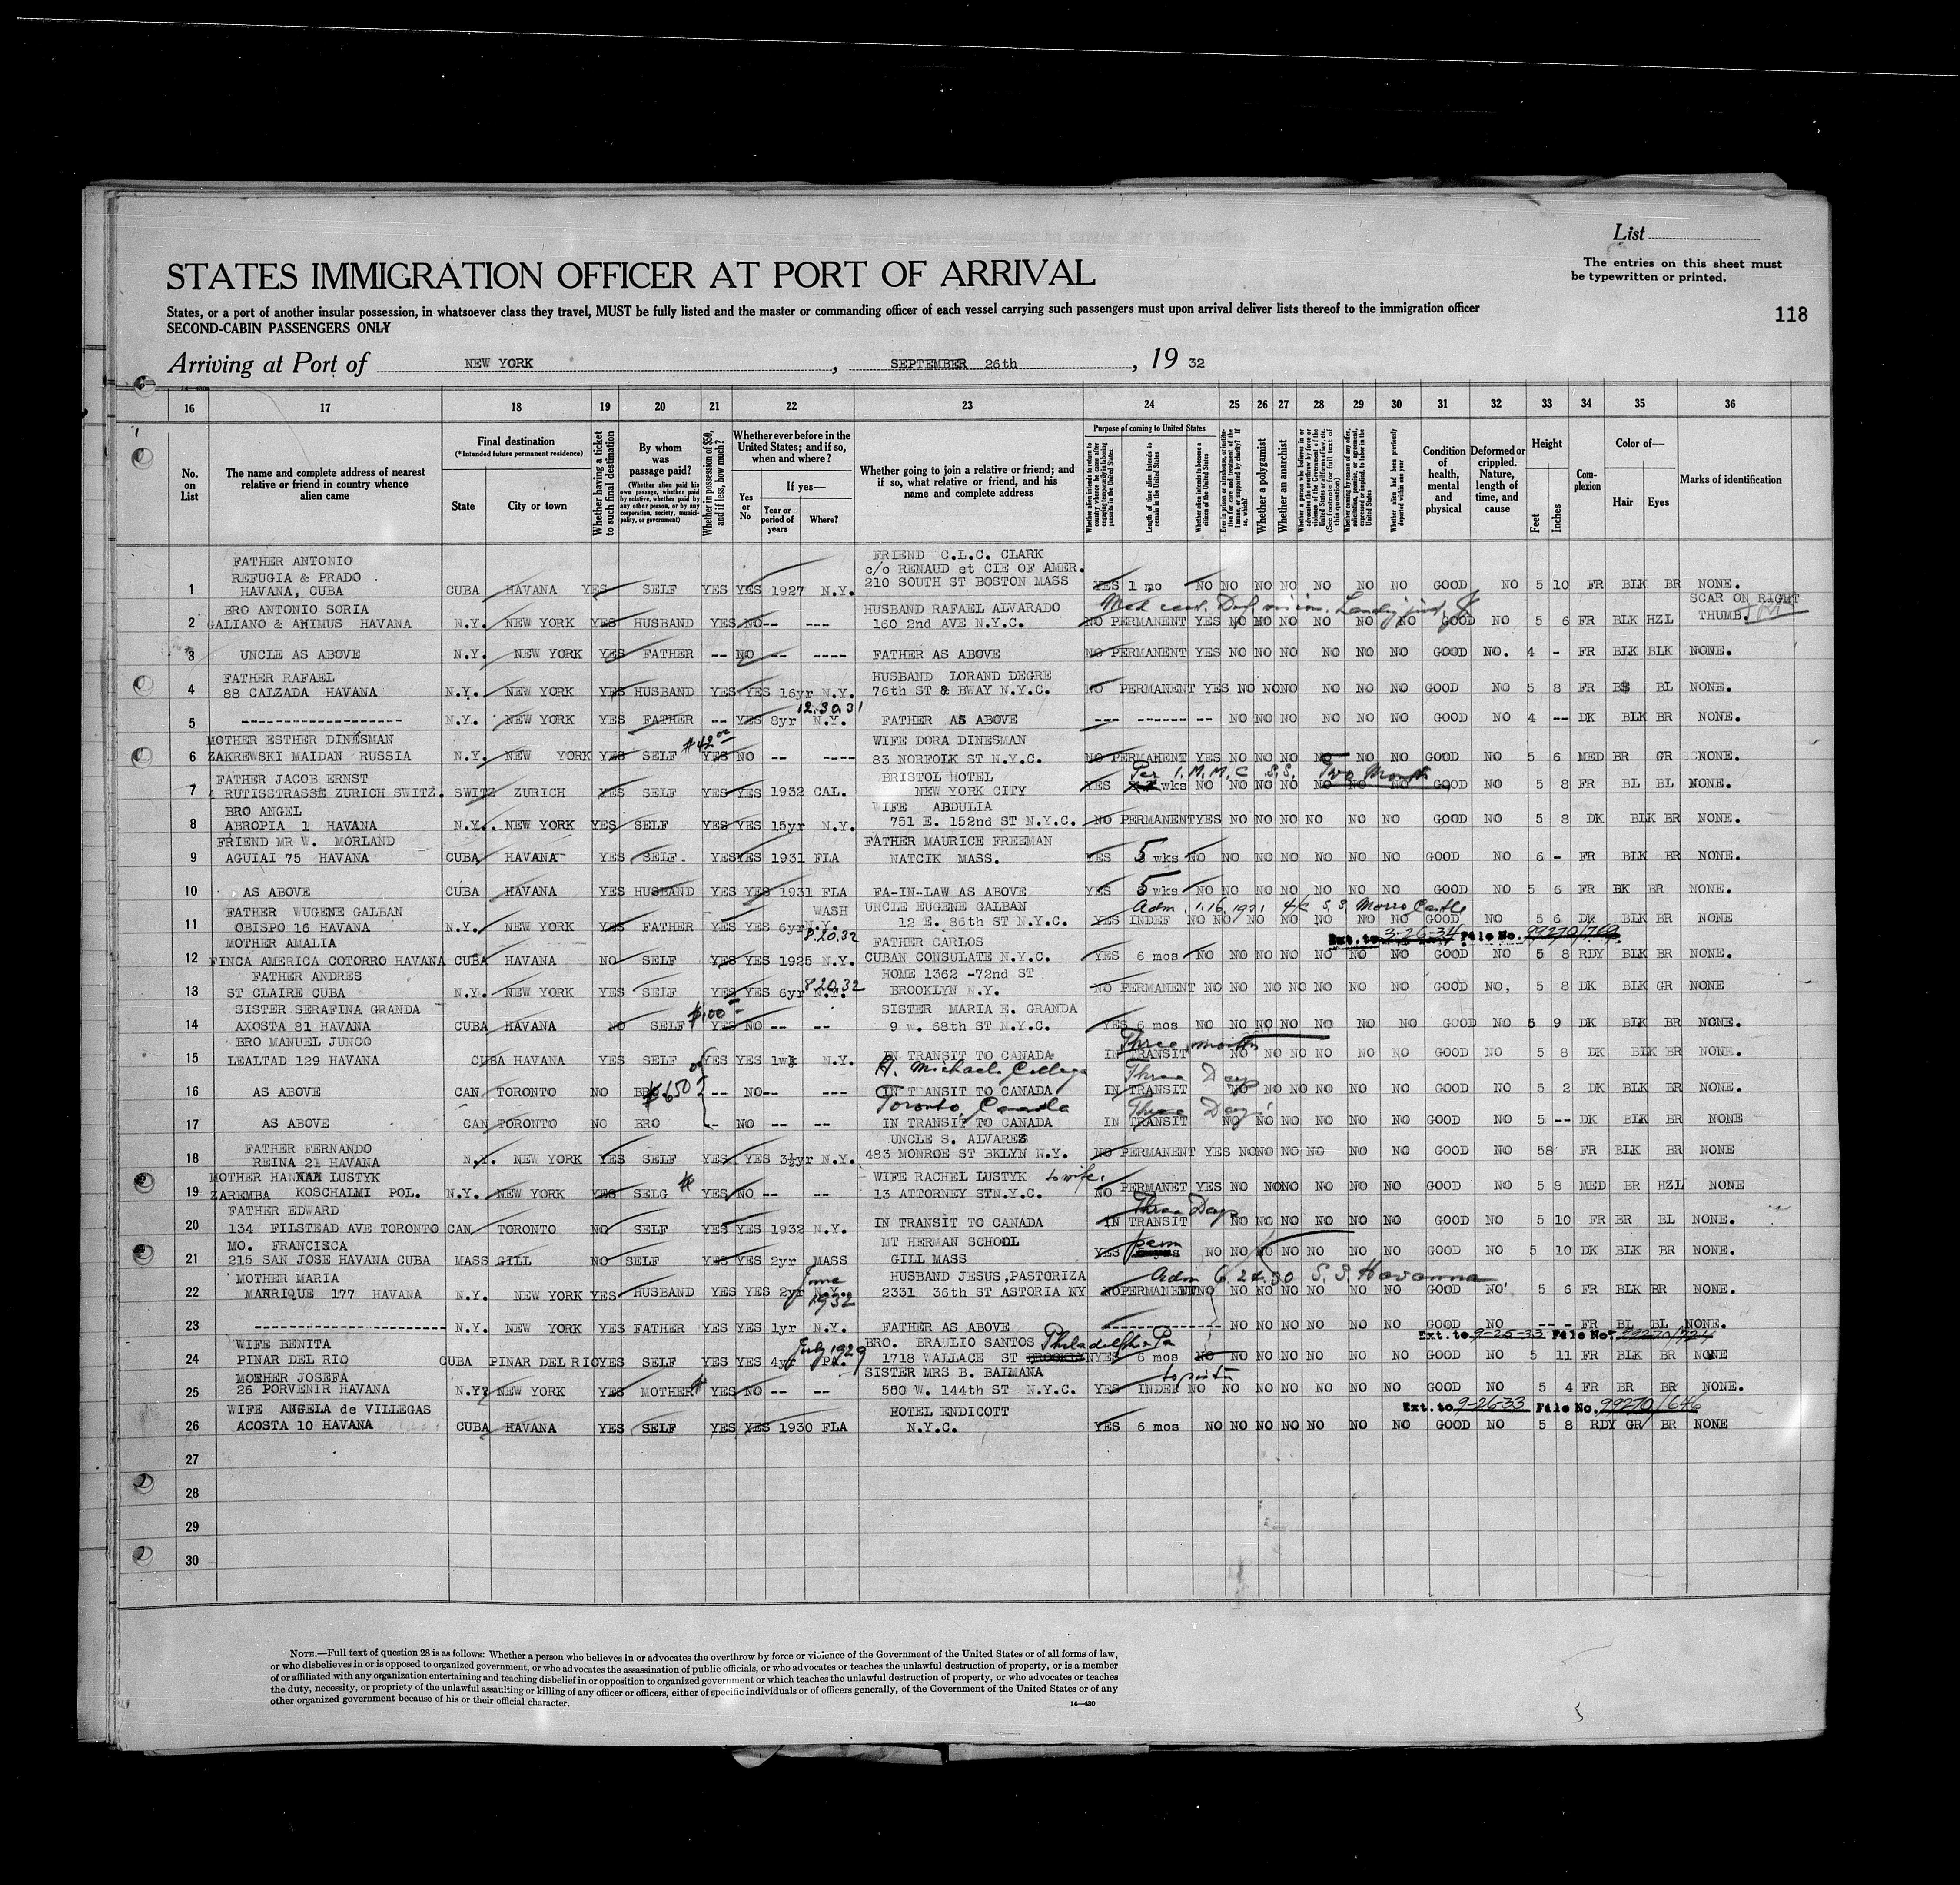 List
The entries on this sheet must
be typewritten or printed.
STATES IMMIGRATION OFFICER AT PORT OF ARRIVAL
States, or a port of another insular possession, in whatsoever class they travel, MUST be fully listed and the master or commanding officer of each vessel carrying such passengers must upon arrival deliver lists thereof to the immigration officer
SECOND-CABIN PASSENGERS ONLY
118
Arriving at Port of NEW YORK, SEPTEMBER 26th, 19 32
16 17 18 19 20 21 22 23 24 25 26 27 28 29 30 31 32 33 34 35 36
No. on List
The name and complete address of nearest relative or friend in country whence alien came
Final destination
(*Intended future permanent residence)
State City or town
Whether having a ticket to such final destination
By whom was passage paid?
(Whether alien paid his own passage, whether paid by relative, whether paid by any other person, or by any corporation, society, municipality, or government)
Whether in possession of $50, and if less, how much?
Whether ever before in the United States; and if so, when and where?
Yes or No
If yes—
Year or period of years
Where?
Whether going to join a relative or friend; and if so, what relative or friend, and his name and complete address
Purpose of coming to United States
Length of time alien intends to remain in the United States
Whether alien intends to become a citizen of the United States
Whether a polygamist
Whether an anarchist
Whether alien had been previously deported within one year
Condition of health, mental and physical
Deformed or crippled. Nature, length of time, and cause
Height
Feet Inches
Complexion
Color of—
Hair Eyes
Marks of identification
FATHER ANTONIO FRIEND C.L.C. CLARK
REFUGIA & PRADO c/o RENAUD et CIE OF AMER.
1 HAVANA, CUBA CUBA HAVANA YES SELF YES YES 1927 N.Y. 210 SOUTH ST BOSTON MASS YES 1 mo NO NO NO NO NO NO NO GOOD NO 5 10 FR BLK BR NONE.
BRO ANTONIO SORIA HUSBAND RAFAEL ALVARADO SCAR ON RIGHT
2 GALIANO & ANIMUS HAVANA N.Y. NEW YORK YES HUSBAND YES NO-- --- 160 2nd AVE N.Y.C. NO PERMANENT YES NO NO NO NO NO NO GOOD NO 5 6 FR BLK HZL THUMB.
3 UNCLE AS ABOVE N.Y. NEW YORK YES FATHER -- NO -- ---- FATHER AS ABOVE NO PERMANENT YES NO NO NO NO NO NO GOOD NO. 4 - FR BLK BLK NONE.
FATHER RAFAEL HUSBAND LORAND DEGRE
4 88 CALZADA HAVANA N.Y. NEW YORK YES HUSBAND YES YES 16yr N.Y. 76th ST & BWAY N.Y.C. NO PERMANENT YES NO NO NO NO NO NO GOOD NO 5 8 FR BL NONE.
12.30.31
5 ------------------ N.Y. NEW YORK YES FATHER -- YES 8yr N.Y. FATHER AS ABOVE --- ------ -- NO NO NO NO NO NO GOOD NO 4 -- DK BLK BR NONE.
MOTHER ESTHER DINESMAN $42.00 WIFE DORA DINESMAN
6 ZAKREWSKI MAIDAN RUSSIA N.Y. NEW YORK YES SELF YES NO -- ---- 83 NORFOLK ST N.Y.C. NO PERMANENT YES NO NO NO NO NO NO GOOD NO 5 6 MED BR GR NONE.
FATHER JACOB ERNST BRISTOL HOTEL Per I.M.M.C S.S. Two Month
7 4 RUTISSTRASSE ZURICH SWITZ. SWITZ ZURICH YES SELF YES YES 1932 CAL. NEW YORK CITY YES wks NO NO NO NO NO NO NO GOOD NO 5 8 FR BL BL NONE.
BRO ANGEL WIFE ABDULIA
8 ABROPIA 1 HAVANA N.Y. NEW YORK YES SELF YES YES 15yr N.Y. 751 E. 152nd ST N.Y.C. NO PERMANENT YES NO NO NO NO NO NO GOOD NO 5 8 DK BLK BR NONE.
FRIEND MR W. MORLAND FATHER MAURICE FREEMAN
9 AGUIAI 75 HAVANA CUBA HAVANA YES SELF. YES YES 1931 FLA NATCIK MASS. YES 5 wks NO NO NO NO NO NO NO GOOD NO 6 - FR BLK BR NONE.
10 AS ABOVE CUBA HAVANA YES HUSBAND YES YES 1931 FLA FA-IN-LAW AS ABOVE YES 5 wks NO NO NO NO NO NO NO GOOD NO 5 6 FR BK BR NONE.
FATHER WUGENE GALBAN WASH UNCLE EUGENE GALBAN Adm. 1.16.1931 S.S. Morro Castle
11 OBISPO 16 HAVANA N.Y. NEW YORK YES FATHER YES YES 6yr N.Y. 12 E. 86th ST N.Y.C. YES INDEF NO NO NO NO NO NO NO GOOD NO 5 6 DK BLK BR NONE
MOTHER AMALIA 8.20.32 FATHER CARLOS Ext. to 3-26-34 File No. 99270/769
12 FINCA AMERICA COTORRO HAVANA CUBA HAVANA NO SELF YES YES 1925 N.Y. CUBAN CONSULATE N.Y.C. YES 6 mos NO NO NO NO NO NO NO GOOD NO 5 8 RDY BLK BR NONE.
FATHER ANDRES 8.20.32 HOME 1362 -72nd ST
13 ST CLAIRE CUBA N.Y. NEW YORK YES SELF YES YES 6yr N.Y. BROOKLYN N.Y. NO PERMANENT NO NO NO NO NO NO NO GOOD NO, 5 8 DK BLK GR NONE
SISTER SERAFINA GRANDA $100 SISTER MARIA E. GRANDA
14 AXOSTA 81 HAVANA CUBA HAVANA NO SELF YES NO -- -- 9 w. 68th ST N.Y.C. YES 6 mos NO NO NO NO NO NO NO GOOD NO 5 9 DK BLK BR NONE.
BRO MANUEL JUNCO Three months
15 LEALTAD 129 HAVANA CUBA HAVANA YES SELF YES YES 1wk N.Y. IN TRANSIT TO CANADA IN TRANSIT NO NO NO NO NO NO GOOD NO 5 8 DK BLK BR NONE.
Michaels College Three Days
16 AS ABOVE CAN TORONTO NO BRO $650 -- NO-- --- IN TRANSIT TO CANADA IN TRANSIT NO NO NO NO NO NO GOOD NO 5 2 DK BLK BR NONE.
Toronto, Canada Three Days
17 AS ABOVE CAN TORONTO NO BRO -- NO -- -- IN TRANSIT TO CANADA IN TRANSIT NO NO NO NO NO NO GOOD NO 5 -- DK BLK BR NONE
FATHER FERNANDO UNCLE S. ALVAREZ
18 REINA 21 HAVANA N.Y. NEW YORK YES SELF YES YES 3½yr N.Y. 483 MONROE ST BKLYN N.Y. NO PERMANENT YES NO NO NO NO NO NO GOOD NO 58 FR BLK BR NONE
MOTHER HANNAH LUSTYK WIFE RACHEL LUSTYK to wife.
19 ZAREMBA KOSCHALMI POL. N.Y. NEW YORK YES SELG YES NO -- -- 13 ATTORNEY STN.Y.C. NO PERMANET YES NO NO NO NO NO NO GOOD NO 5 8 MED BR HZL NONE
FATHER EDWARD Three Days
20 134 FILSTEAD AVE TORONTO CAN TORONTO NO SELF YES YES 1932 N.Y. IN TRANSIT TO CANADA IN TRANSIT NO NO NO NO NO NO GOOD NO 5 10 FR BR BL NONE.
MO. FRANCISCA MT HERMAN SCHOOL perm
21 215 SAN JOSE HAVANA CUBA MASS GILL NO SELF YES YES 2yr MASS GILL MASS YES NO NO NO NO NO NO NO GOOD NO 5 10 DK BLK BR NONE.
MOTHER MARIA June 1932 HUSBAND JESUS,PASTORIZA Adm 6.24.30 S.S. Havanna
22 MANRIQUE 177 HAVANA N.Y. NEW YORK YES HUSBAND YES YES 2yr N.Y. 2331 36th ST ASTORIA NY NO PERMANENT NO NO NO NO NO NO NO GOOD NO 5 6 FR BLK BR NONE.
23 --------------------- N.Y. NEW YORK YES FATHER YES YES 1yr N.Y. FATHER AS ABOVE -------------- NO NO NO NO NO NO GOOD NO -- - FR BL BL NONE.
WIFE BENITA July 1929 BRO. BRAULIO SANTOS Philadelphia Pa Ext. to 9-25-33 File No.
24 PINAR DEL RIO CUBA PINAR DEL RIO YES SELF YES YES 4yr PA. 1718 WALLACE ST BROOKLYN YES 6 mos NO NO NO NO NO NO NO GOOD NO 5 11 FR BLK BR NONE
MOTHER JOSEFA SISTER MRS B. BAIMANA
25 26 PORVENIR HAVANA N.Y. NEW YORK YES MOTHER YES NO -- -- 500 W. 144th ST N.Y.C. YES INDEF NO NO NO NO NO NO NO GOOD NO 5 4 FR BR BR NONE.
WIFE ANGELA de VILLEGAS HOTEL ENDICOTT Ext. to 9-26-33 File No. 99270/646
26 ACOSTA 10 HAVANA CUBA HAVANA YES SELF YES YES 1930 FLA N.Y.C. YES 6 mos NO NO NO NO NO NO NO GOOD NO 5 8 RDY GR BR NONE
27
28
29
30
NOTE.—Full text of question 28 is as follows: Whether a person who believes in or advocates the overthrow by force or violence of the Government of the United States or of all forms of law,
or who disbelieves in or is opposed to organized government, or who advocates the assassination of public officials, or who advocates or teaches the unlawful destruction of property, or is a member
of or affiliated with any organization entertaining and teaching disbelief in or opposition to organized government or which teaches the unlawful destruction of property, or who advocates or teaches
the duty, necessity, or propriety of the unlawful assaulting or killing of any officer or officers, either of specific individuals or of officers generally, of the Government of the United States or of any
other organized government because of his or their official character.
14—430
5